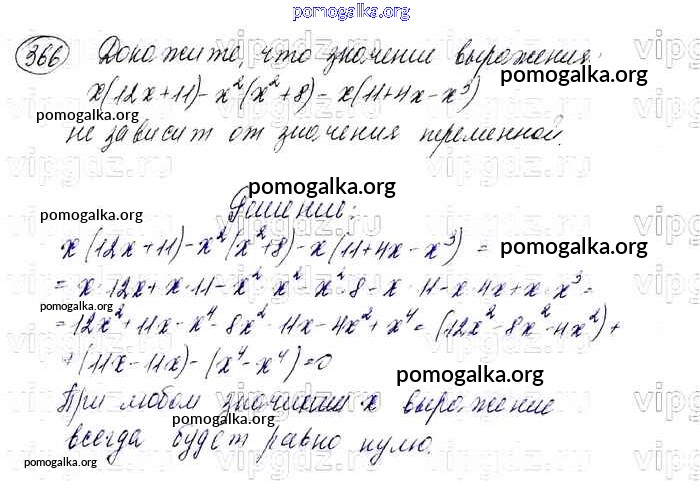 pomogalka.org
366 Докажите, что значение выражения:
x(12x+11)-x²(x²+8)-x(11+4x-x³)
pomogalka.org
pomogalka.org
не зависит от значения переменной.
pomogalka.org
Решение:
pomogalka.org
x(12x+11)-x²(x²+8)-x(11+4x-x³) =
pomogalka.org
= x·12x+x·11-x²·x²-x²·8-x·11-x·4x+x·x³=
pomogalka.org
=12x²+11x-x⁴-8x²-11x-4x²+x⁴=(12x²-8x²-4x²)+
+(11x-11x)-(x⁴-x⁴)=0
pomogalka.org
При любом значении x выражение
pomogalka.org
всегда будет равно нулю.
pomogalka.org
vipgdz.ru